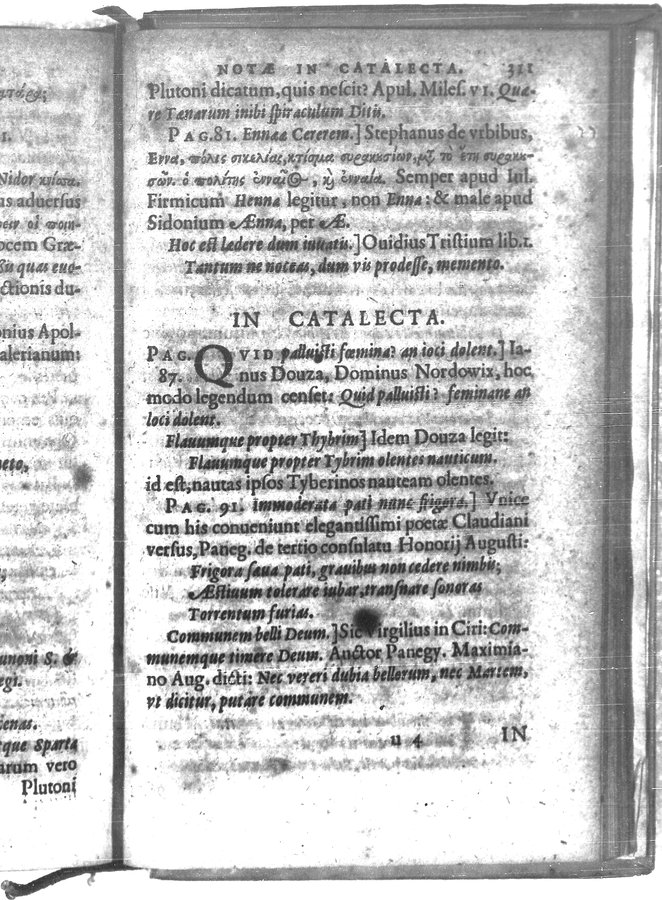 ατάρα;
I.
Nidor κνίσσα.
us aduersus
ocem Græ-
ßū quas euo-
ctionis du-
onius Apol-
alerianum:
neto,
unoni S. &
egi.
cenas.
tque Sparta
arum vero
Plutoni
NOTÆ IN CATALECTA. 311
Plutoni dicatum, quis nescit? Apul. Miles. VI. Qua-
re Tænarum inibi spiraculum Ditis.
PAG. 81. Ennæa Cererem.] Stephanus de vrbibus,
Εννα, πόλις σικελίας, κτίσμα συρακυσίων, μξ τὸ ἔτη συρακυ-
σῶν. ὁ πολίτης ἐνναῖος, κὴ ἐνναία. Semper apud Iul.
Firmicum Henna legitur, non Enna: & male apud
Sidonium Ænna, per Æ.
Hoc est lædere dum iuuatis.] Ouidius Tristium lib. I.
Tantum ne noceas, dum vis prodesse, memento.
IN CATALECTA.
PAG. QVID palluisti fœmina? an ioci dolent.] Ia-
87. nus Douza, Dominus Nordowix, hoc
modo legendum censet: Quid palluisti? feminane an
loci dolent.
Flauumque propter Thybrim] Idem Douza legit:
Flauumque propter Tybrim olentes nauticum.
id est, nautas ipsos Tyberinos nauteam olentes.
PAG. 91. immoderata pati nunc frigora.] Vnice
cum his conueniunt elegantissimi poetæ Claudiani
versus, Paneg. de tertio consulatu Honorij Augusti:
Frigora sæua pati, grauibus non cedere nimbis;
Æstiuum tolerare iubar, transnare sonoras
Torrentum furias.
Communem belli Deum.] Sic Virgilius in Ciri: Com-
munemque timere Deum. Auctor Panegy. Maximia-
no Aug. dicti: Nec vereri dubia bellorum, nec Martem,
vt dicitur, putare communem.
u 4 IN